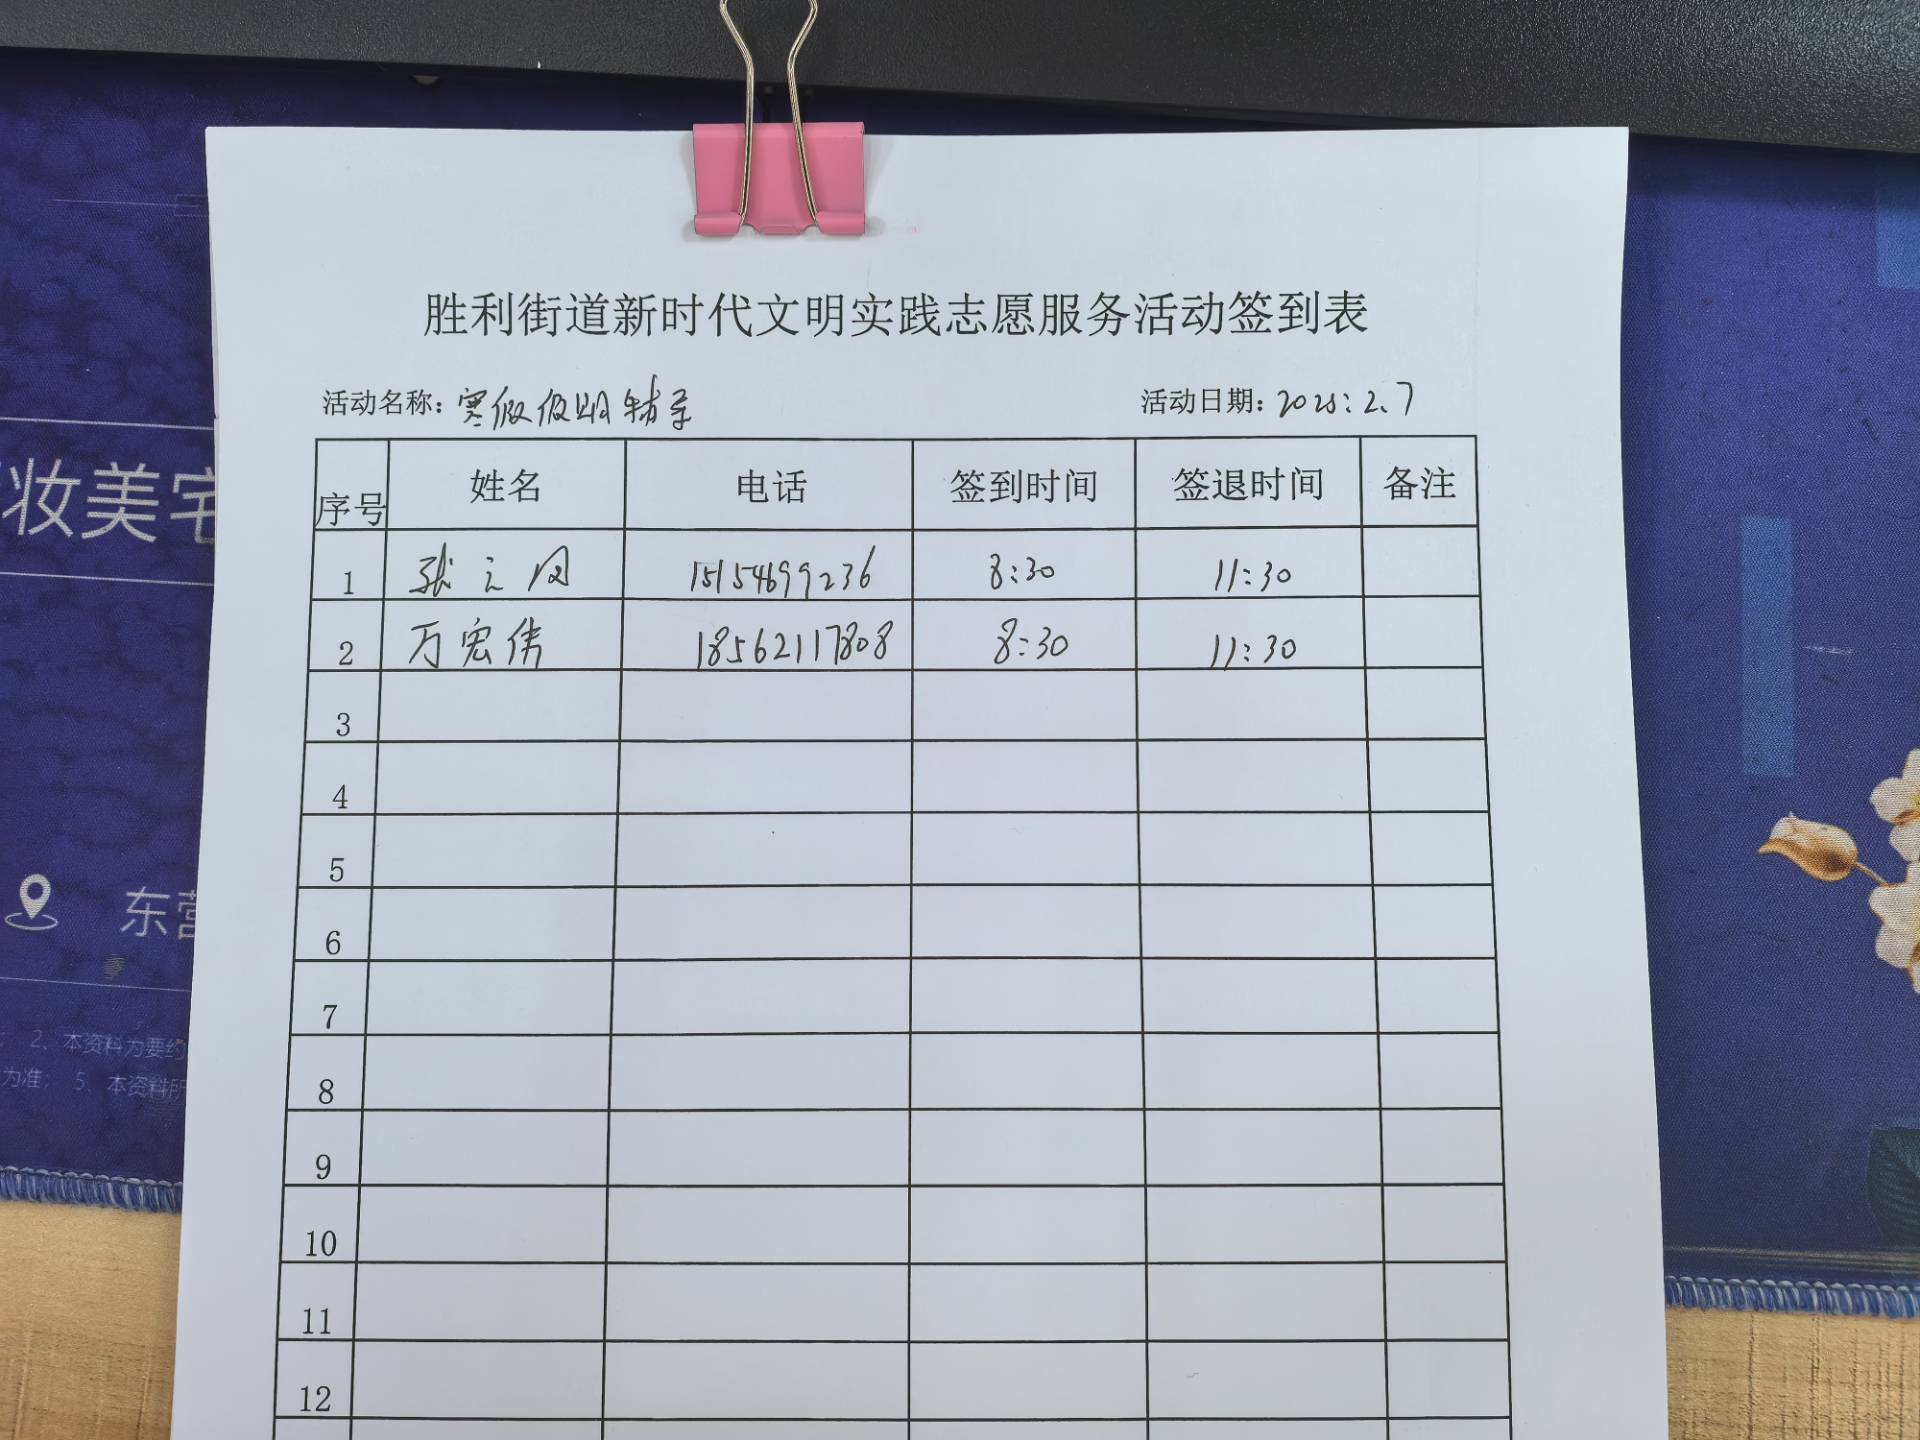 胜利街道新时代文明实践志愿服务活动签到表
活动名称：寒假假期辅导 活动日期：2025.2.7
序号 姓名 电话 签到时间 签退时间 备注
1 张 15154699236 8:30 11:30
2 万宏伟 18562117808 8:30 11:30
3
4
5
6
7
8
9
10
11
12
妆美宅
东营
2、本资料为要约
为准； 5、本资料所